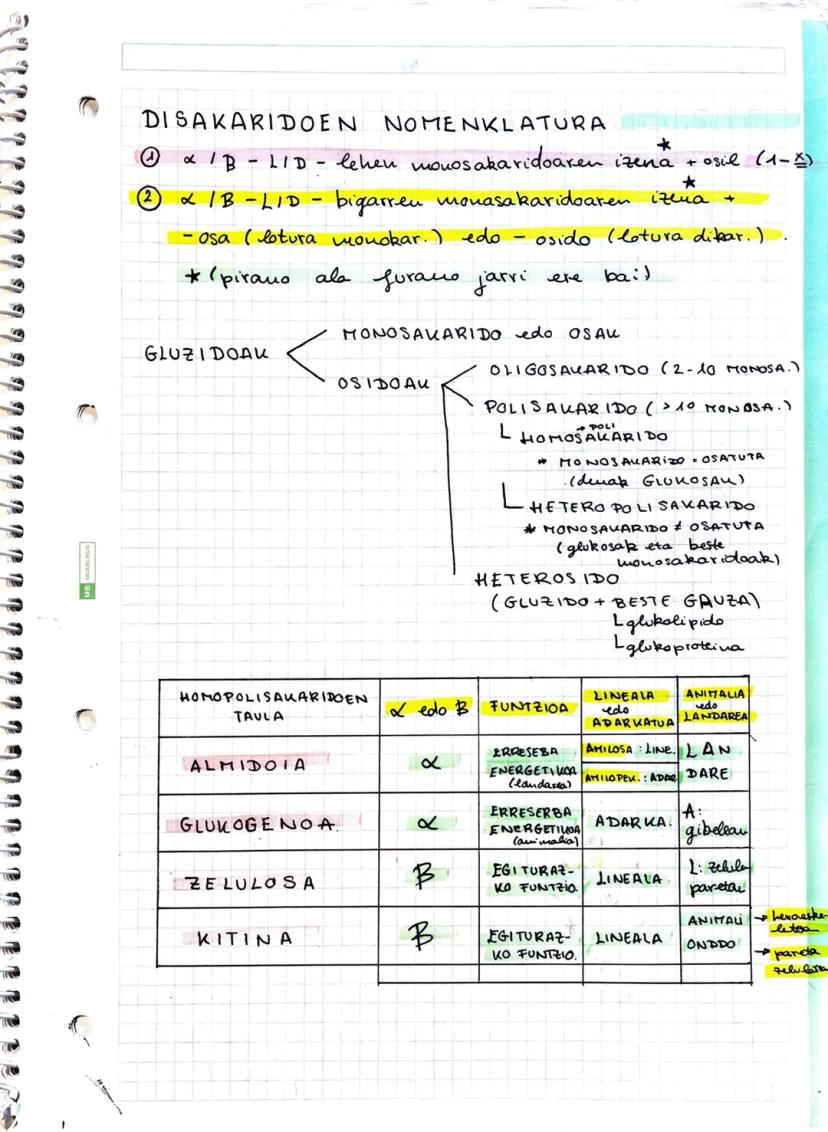 DISAKARIDOEN NOMENKLATURA
① α / B - L/D - lehen monosakaridoaren izena* + osil (1-x)
② α / B - L/D - bigarren monasakaridoaren izena* +
- osa (lotura monokar.) edo - osido (lotura dikar.).
* (pirano ala furano jarri ere bai)
GLUZIDOAK
MONOSAKARIDO edo OSAK
OSIDOAK
OLIGOSAKARIDO (2-10 MONOSA.)
POLISAKARIDO (>10 MONOSA.)
→ POLI
HOMOSAKARIDO
* MONOSAKARIDO = OSATUTA
(denak GLUKOSAK)
HETEROPOLISAKARIDO
* MONOSAKARIDO ≠ OSATUTA
(glukosak eta beste
monosakaridoak)
HETEROSIDO
(GLUZIDO + BESTE GAUZA)
glukolipido
glukoproteina
HOMOPOLISAKARIDOEN
TAULA
α edo B
FUNTZIOA
LINEALA
edo
ADARKATUA
ANIMALIA
edo
LANDAREA
ALMIDOIA
α
ERRESEBA
ENERGETIKOA
(landarea)
AMILOSA : LINE.
AMILOPEK. : ADAR.
LAN
DARE
GLUKOGENOA
α
ERRESERBA
ENERGETIKOA
(animalia)
ADARKA.
A:
gibelean
ZELULOSA
B
EGITURAZ-
KO FUNTZIO
LINEALA
L: zelula
paretan
KITINA
B
EGITURAZ-
KO FUNTZIO.
LINEALA
ANIMALI
ONDDO
→ hexoeske-
letoa
→ pareta
zelularra
MIQUELRIUS